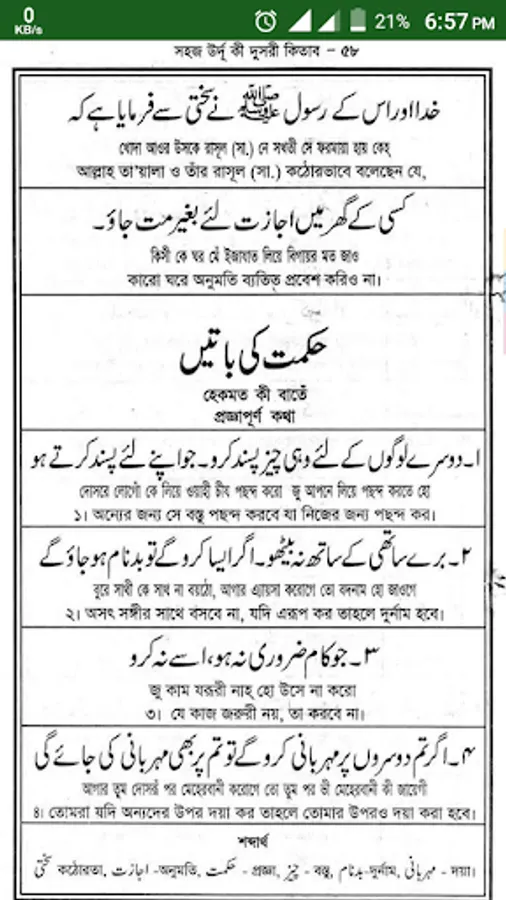 0
KB/s
21%
6:57 PM
সহজ উর্দূ কী দুসরী কিতাব - ৫৮
خدا اور اس کے رسول ﷺ نے سختی سے فرمایا ہے کہ
খোদা আওর উসকে রাসূল (সা.) নে সখতী সে ফরমায়া হায় কেহ্
আল্লাহ তা'য়ালা ও তাঁর রাসূল (সা.) কঠোরভাবে বলেছেন যে,
کسی کے گھر میں اجازت لئے بغیر مت جاؤ۔
কিসী কে ঘর মেঁ ইজাযাত লিয়ে বিগায়র মত জাও
কারো ঘরে অনুমতি ব্যতিত প্রবেশ করিও না।
حکمت کی باتیں
হেকমত কী বাতেঁ
প্রজ্ঞাপূর্ণ কথা
۱۔ دوسرے لوگوں کے لئے وہی چیز پسند کرو۔ جو اپنے لئے پسند کرتے ہو
দোসরে লোগোঁ কে লিয়ে ওয়াহী চীয পছন্দ করো জু আপনে লিয়ে পছন্দ করতে হো
১। অন্যের জন্য সে বস্তু পছন্দ করবে যা নিজের জন্য পছন্দ কর।
۲۔ برے ساتھی کے ساتھ نہ بیٹھو۔ اگر ایسا کرو گے تو بدنام ہو جاؤ گے
বুরে সাথী কে সাথ না বয়ঠো, আগার এ্যায়সা করোগে তো বদনাম হো জাওগে
২। অসৎ সঙ্গীর সাথে বসবে না, যদি এরূপ কর তাহলে দুর্নাম হবে।
۳۔ جو کام ضروری نہ ہو، اسے نہ کرو
জু কাম যরূরী নাহ্ হো উসে না করো
৩। যে কাজ জরুরী নয়, তা করবে না।
۴۔ اگر تم دوسروں پر مہربانی کرو گے تو تم پر بھی مہربانی کی جائے گی
আগার তুম দোসরোঁ পর মেহেরবানী করোগে তো তুম পর ভী মেহেরবানী কী জায়েগী
৪। তোমরা যদি অন্যদের উপর দয়া কর তাহলে তোমার উপরও দয়া করা হবে।
শব্দার্থ
سختی কঠোরতা, اجازت -অনুমতি, حکمت - প্রজ্ঞা, چیز - বস্তু, بدنام -দুর্নাম, مہربانی - দয়া।